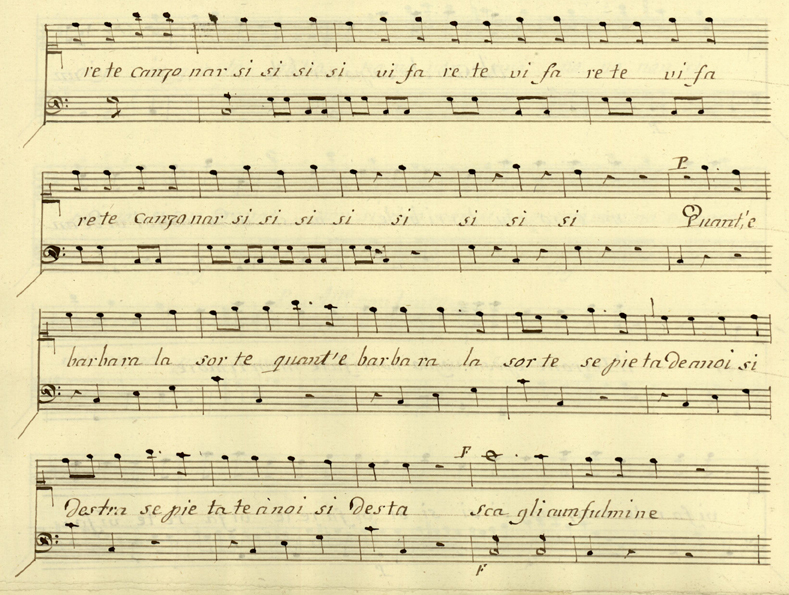 rete canzonar si si si si vi fa rete vi fa rete vi fa
P
rete canzonar si si si si si si si si Quant'e
barbara la sorte quant'e barbara la sorte se pieta de anoi si
F
destra se pie tate ànoi si desta sca gli aun fulmine
F